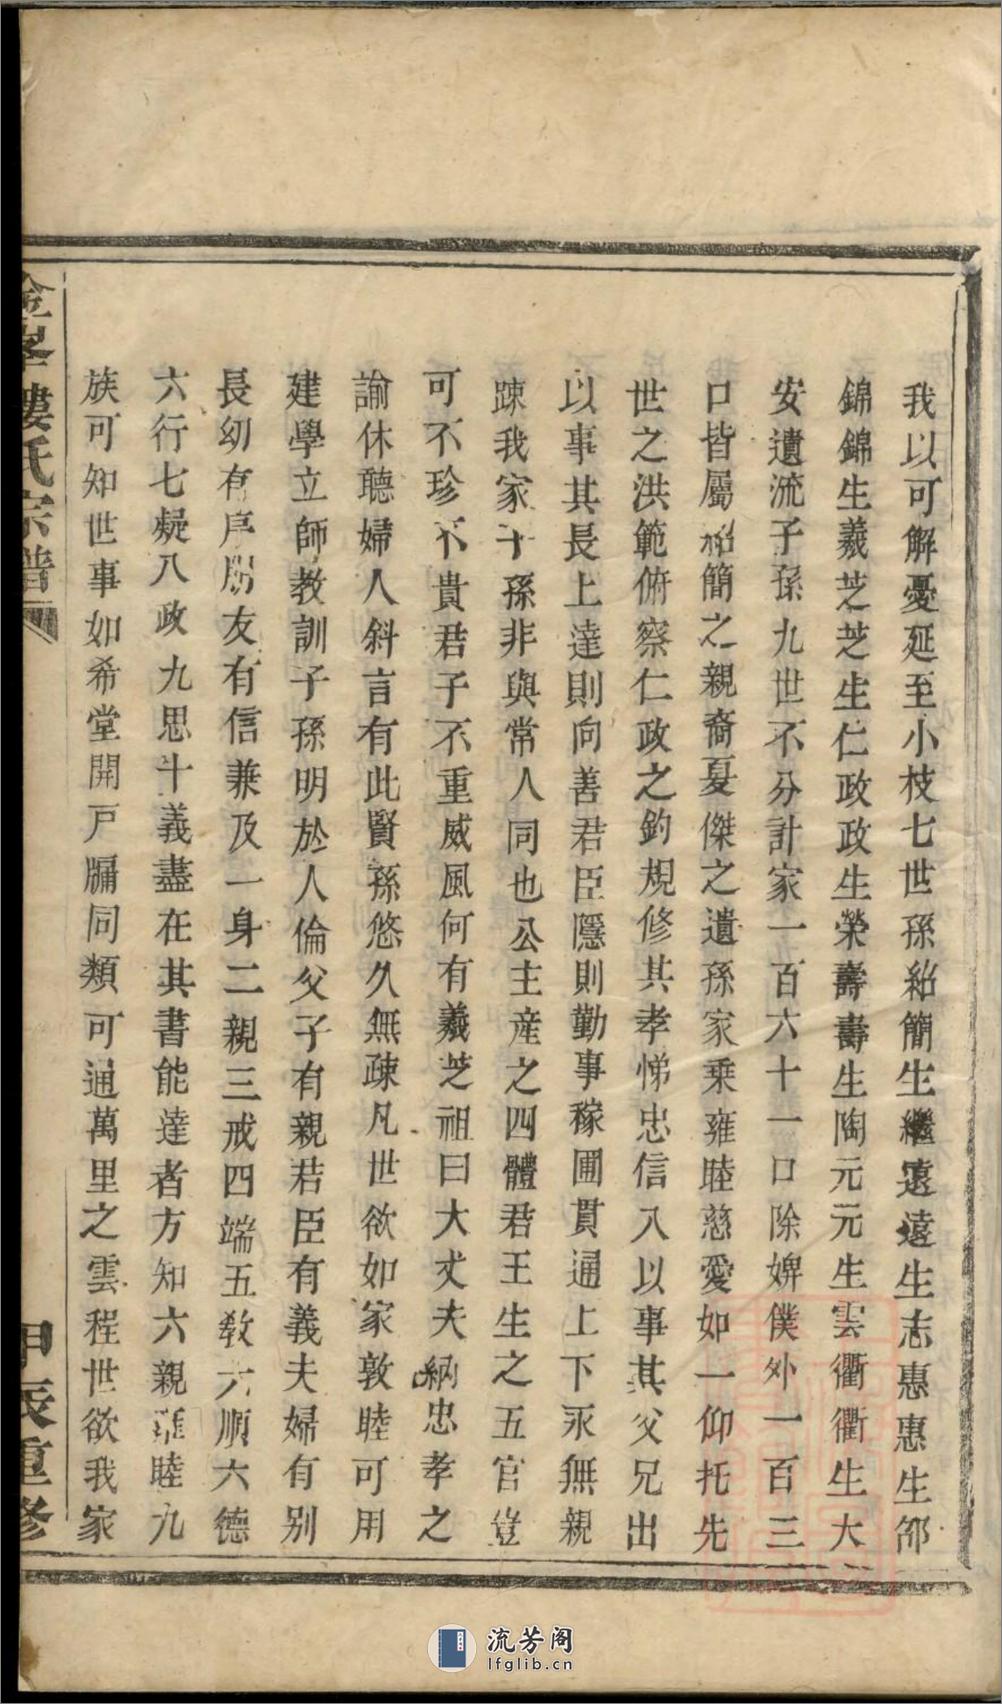 我以可解憂延至小枝七世孫紹簡生繼遠遠生志惠惠生邵
錦錦生羲芝芝生仁政政生榮壽壽生陶元元生雲衢衢生大
安遺流子孫九世不分計家一百六十一口除婢僕外一百三
口皆屬紹簡之親裔夏傑之遺孫家乗雍睦慈愛如一仰托先
世之洪範俯察仁政之鈞規修其孝悌忠信入以事其父兄出
以事其長上達則向善君臣隱則勤事稼圃貫通上下永無親
踈我家子孫非與常人同也公主産之四體君王生之五官豈
可不珍不貴君子不重威風何有羲芝祖曰大丈夫納忠孝之
諭休聽婦人斜言有此賢孫悠久無疎凡世欲如家敦睦可用
建學立師教訓子孫明於人倫父子有親君臣有義夫婦有别
長幼有序朋友有信兼及一身二親三戒四端五教六順六德
六行七疑八政九思十義盡在其書能達者方知六親雍睦九
族可知世事如希堂開戸牖同類可通萬里之雲程世欲我家
金峯樓氏宗譜
甲辰重修
流芳阁
lfglib.cn